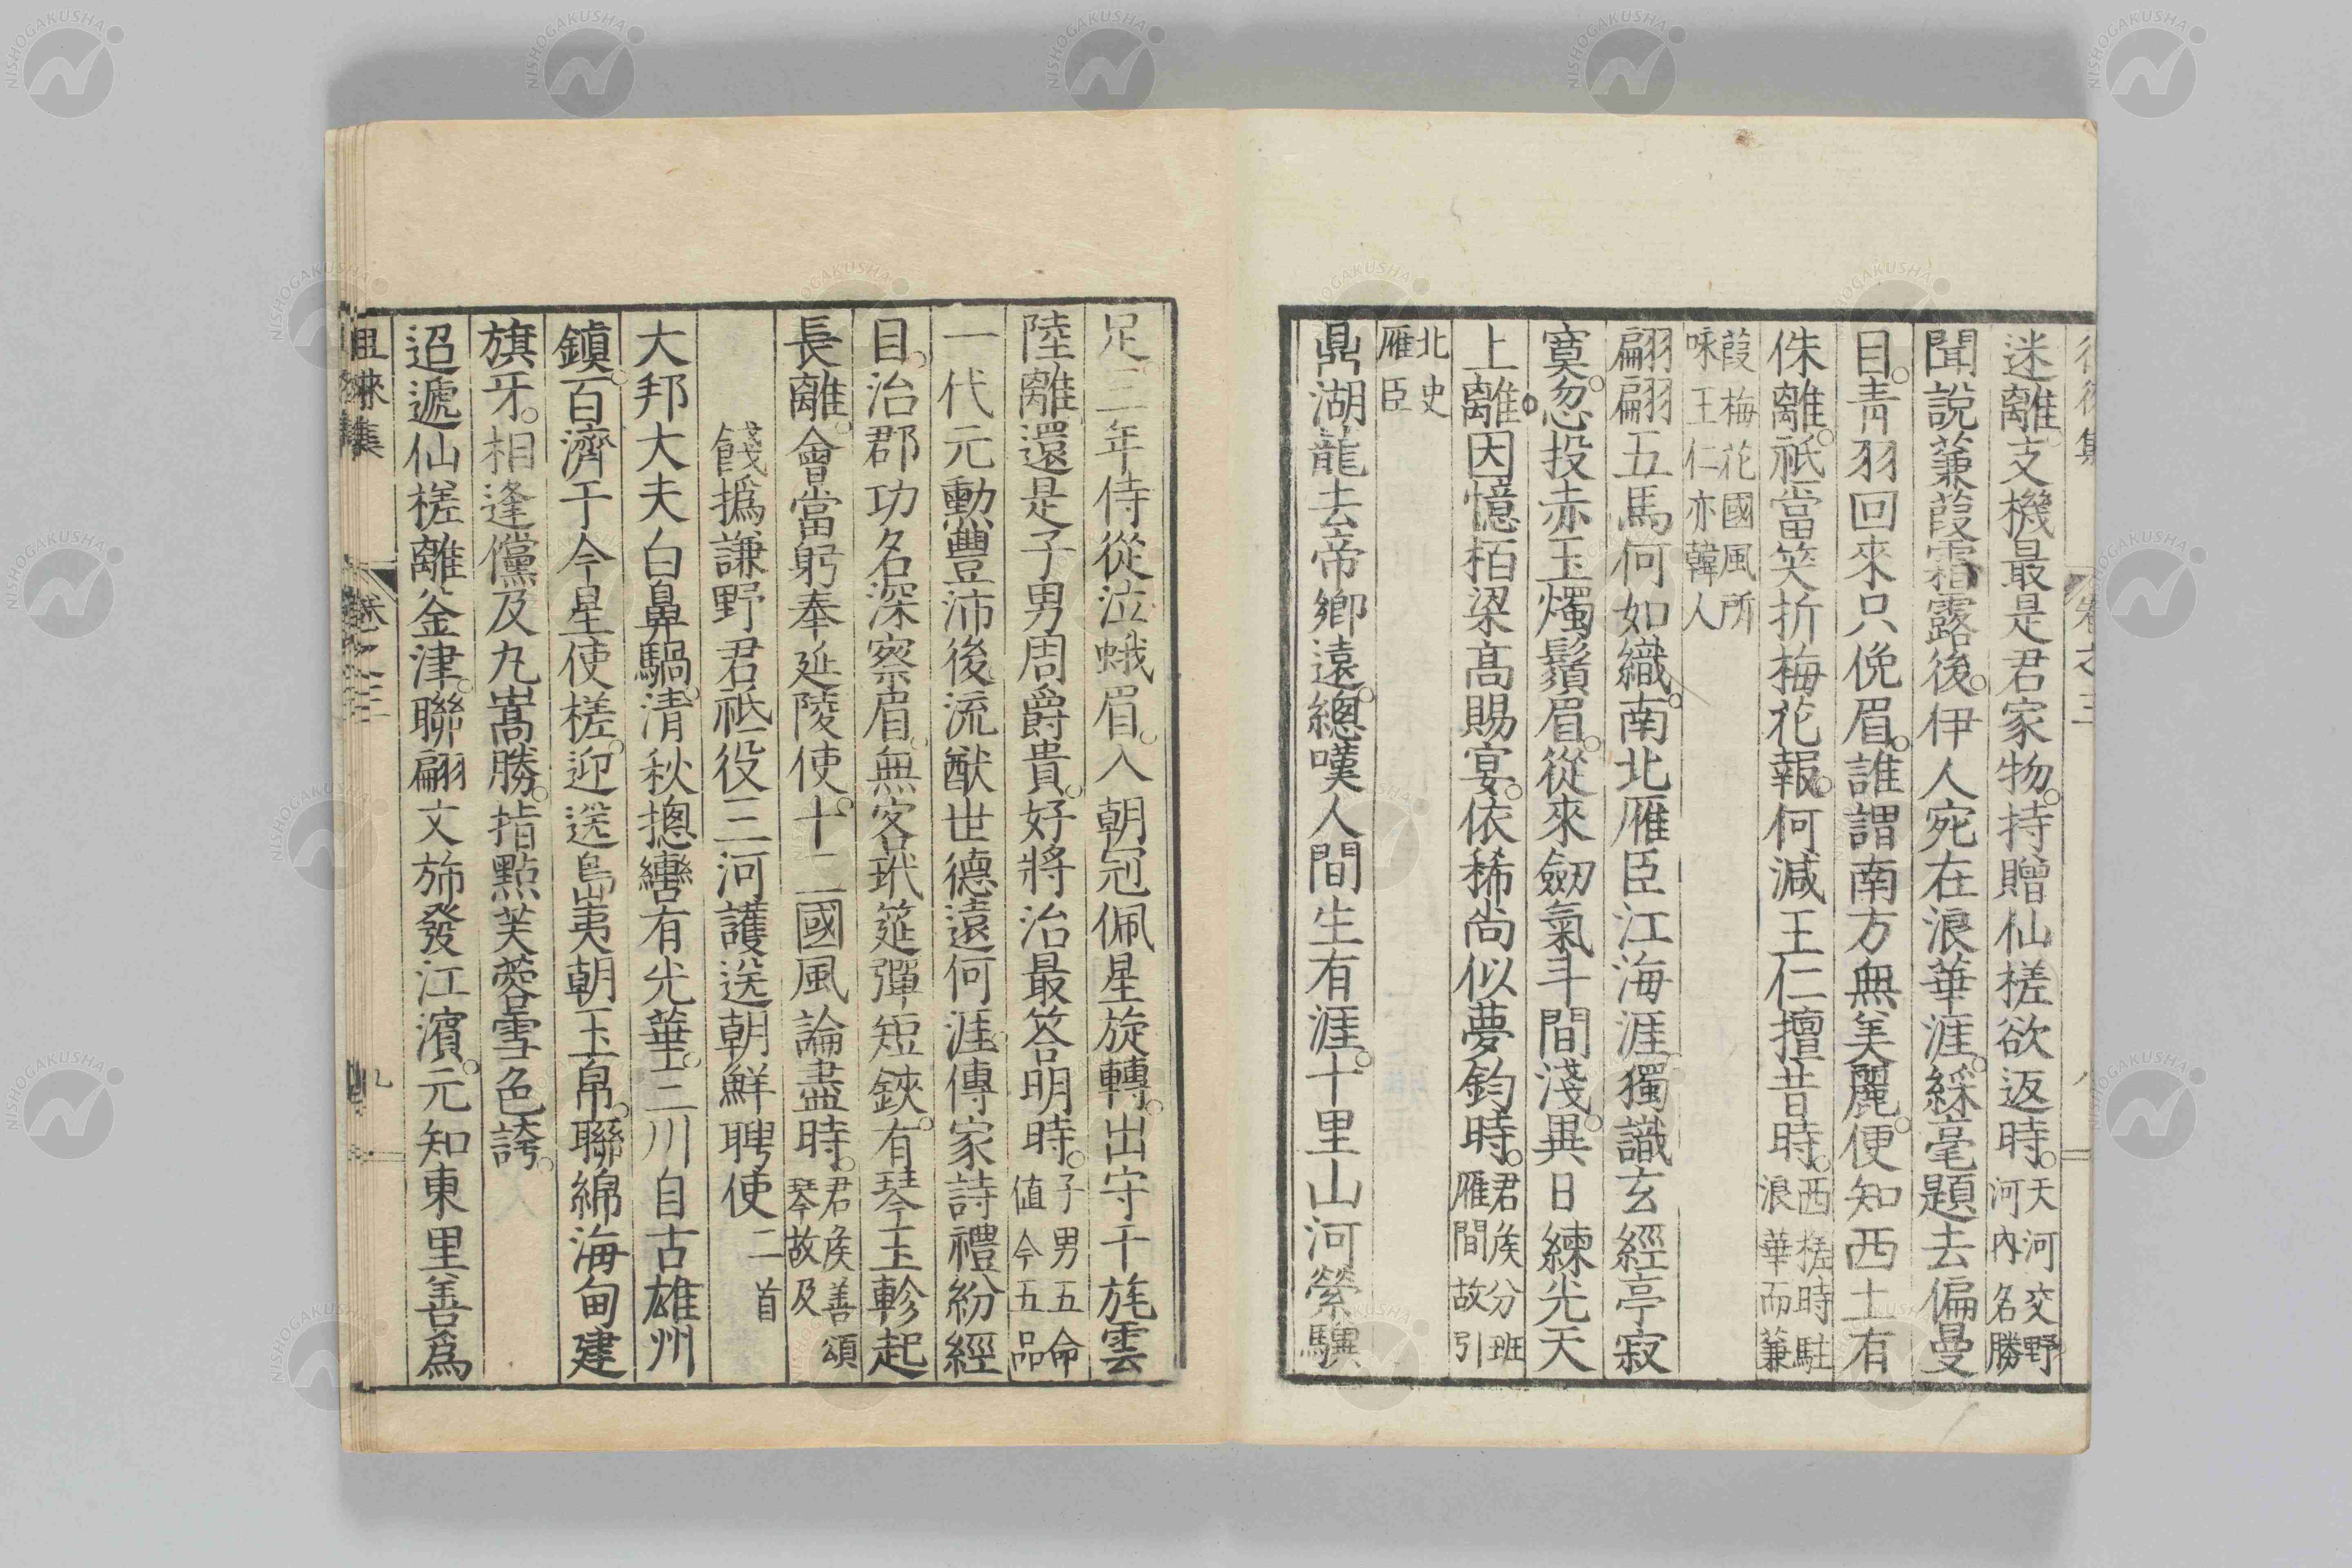 迷離。支機最是君家物。持贈仙槎欲返時。天河交野河內名勝
聞說蒹葭霜露後。伊人宛在浪華涯。綵毫題去偏曼
目。青羽回來只俛眉。誰謂南方無美麗。便知西土有
侏離。祇當笑折梅花報。何減王仁擅昔時。西槎時駐浪華而蒹
葭梅花國風所咏王仁亦韓人
翩翩五馬何如織。南北雁臣江海涯。獨識玄經亭寂
寞。忽投赤玉燭鬚眉。從來劒氣斗間淺。異日練光天
上離。因憶栢梁高賜宴。依稀尚似夢鈞時。君侯分班雁間故引
北史雁臣
鼎湖龍去帝鄉遠。總嘆人間生有涯。十里山河縈驥
足。三年侍從泣蛾眉。入朝冠佩星旋轉。出守干旄雲
陸離。還是子男周爵貴。好將治最答明時。子男五命值今五品
一代元勳豐沛後。流猷世德遠何涯。傳家詩禮紛經
目。治郡功名深察眉。無客玳筵彈短鋏。有琴玉軫起
長離。會當躬奉延陵使。十二國風論盡時。君侯善頌琴故及
餞撝謙野君祗役三河護送朝鮮聘使二首
大邦大夫白鼻騧。清秋摠轡有光華。三川自古雄州
鎮。百濟于今星使槎。迎送島夷朝玉帛。聯綿海甸建
旗牙。相逢儻及九嵩勝。指點芙蓉雪色誇。
迢遞仙槎離釜津。聯翩文斾發江濱。元知東里善爲
徂徠集
卷之三
九